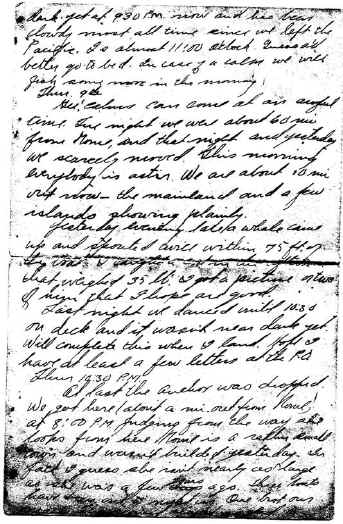 dark yet at 9:30 P.M. now and has been
cloudy most all time since we left the
Pacific. Is almost 11:00 o'clock. Guess I'll
better go to bed. In case of a calm we will
fish some more in the morning.
Thurs. 9th
calms can come at an awful
time. Tues night we were about 60 mi
from Nome, and that night and yesterday
we scarcely moved. This morning
everybody is astir. We are about 10 mi
out now — the mainland and a few
islands showing plainly.
Yesterday evening late a whale came
up and spouted twice within 75 ft of
caught a
that weighed 35 lb. I got a picture or two
of him that I hope are good.
Last night we danced until 10:30
on deck and it wasn't near dark yet.
Will complete this when I land. Hope I
have at least a few letters at the P.O.
Thurs 10:30 P.M.
At last the anchor was dropped
We got here (about a mi. out from Nome)
at 8:00 P.M. Judging from the way she
looks from here Nome is a rather small
town and wasn't builded yesterday. In
fact I guess she isn't nearly as large
as she was a few years ago.
have
One of our